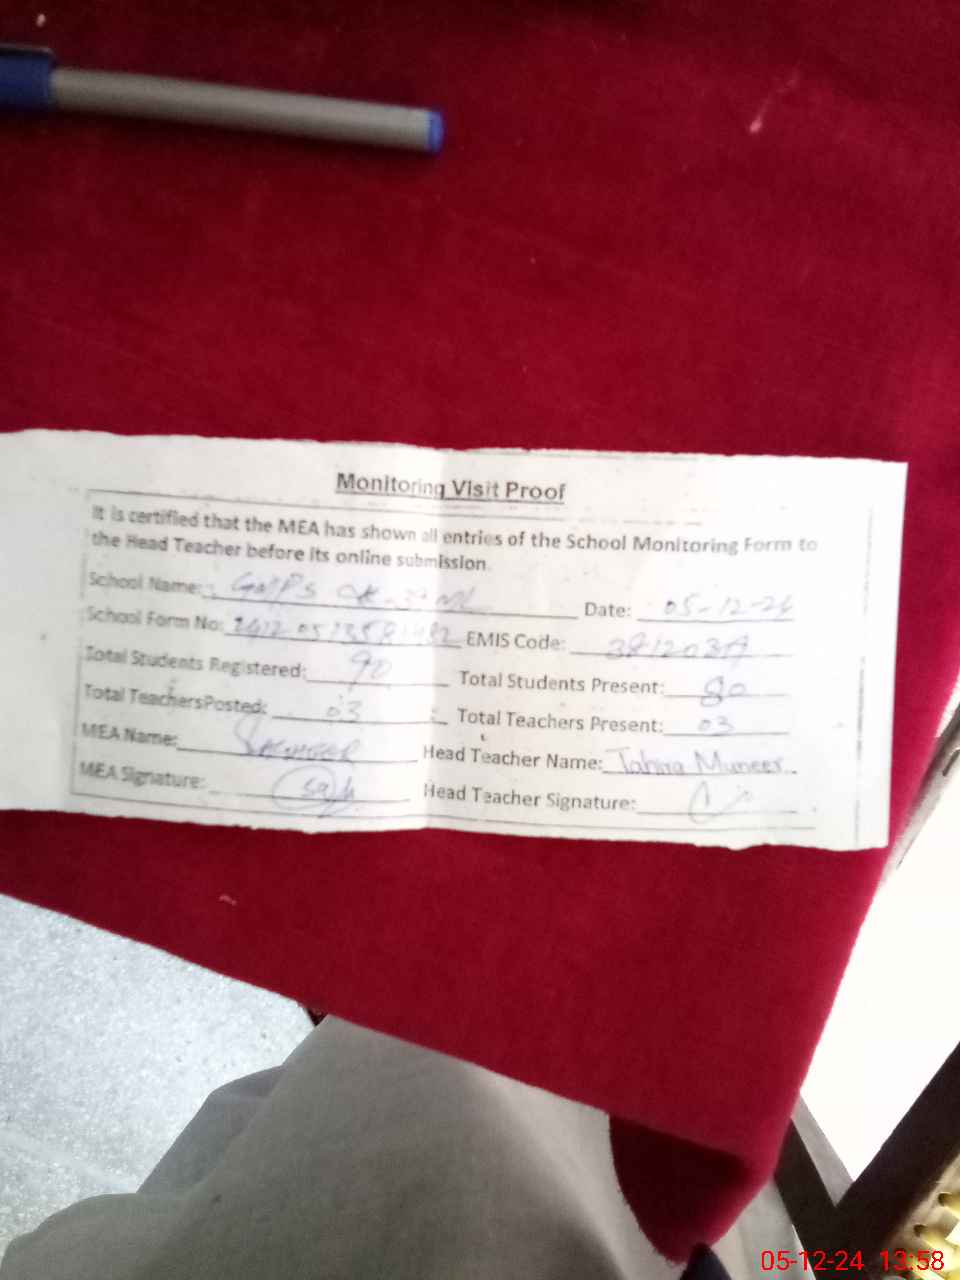 Monitoring Visit Proof
It is certified that the MEA has shown all entries of the School Monitoring Form to
the Head Teacher before its online submission.
School Name: Date: 05-12-24
School Form No: EMIS Code:
Total Students Registered: 90 Total Students Present: 80
Total TeachersPosted: 03 Total Teachers Present: 03
MEA Name: Head Teacher Name: Tahira Muneer
MEA Signature: Head Teacher Signature:
05-12-24 13:58